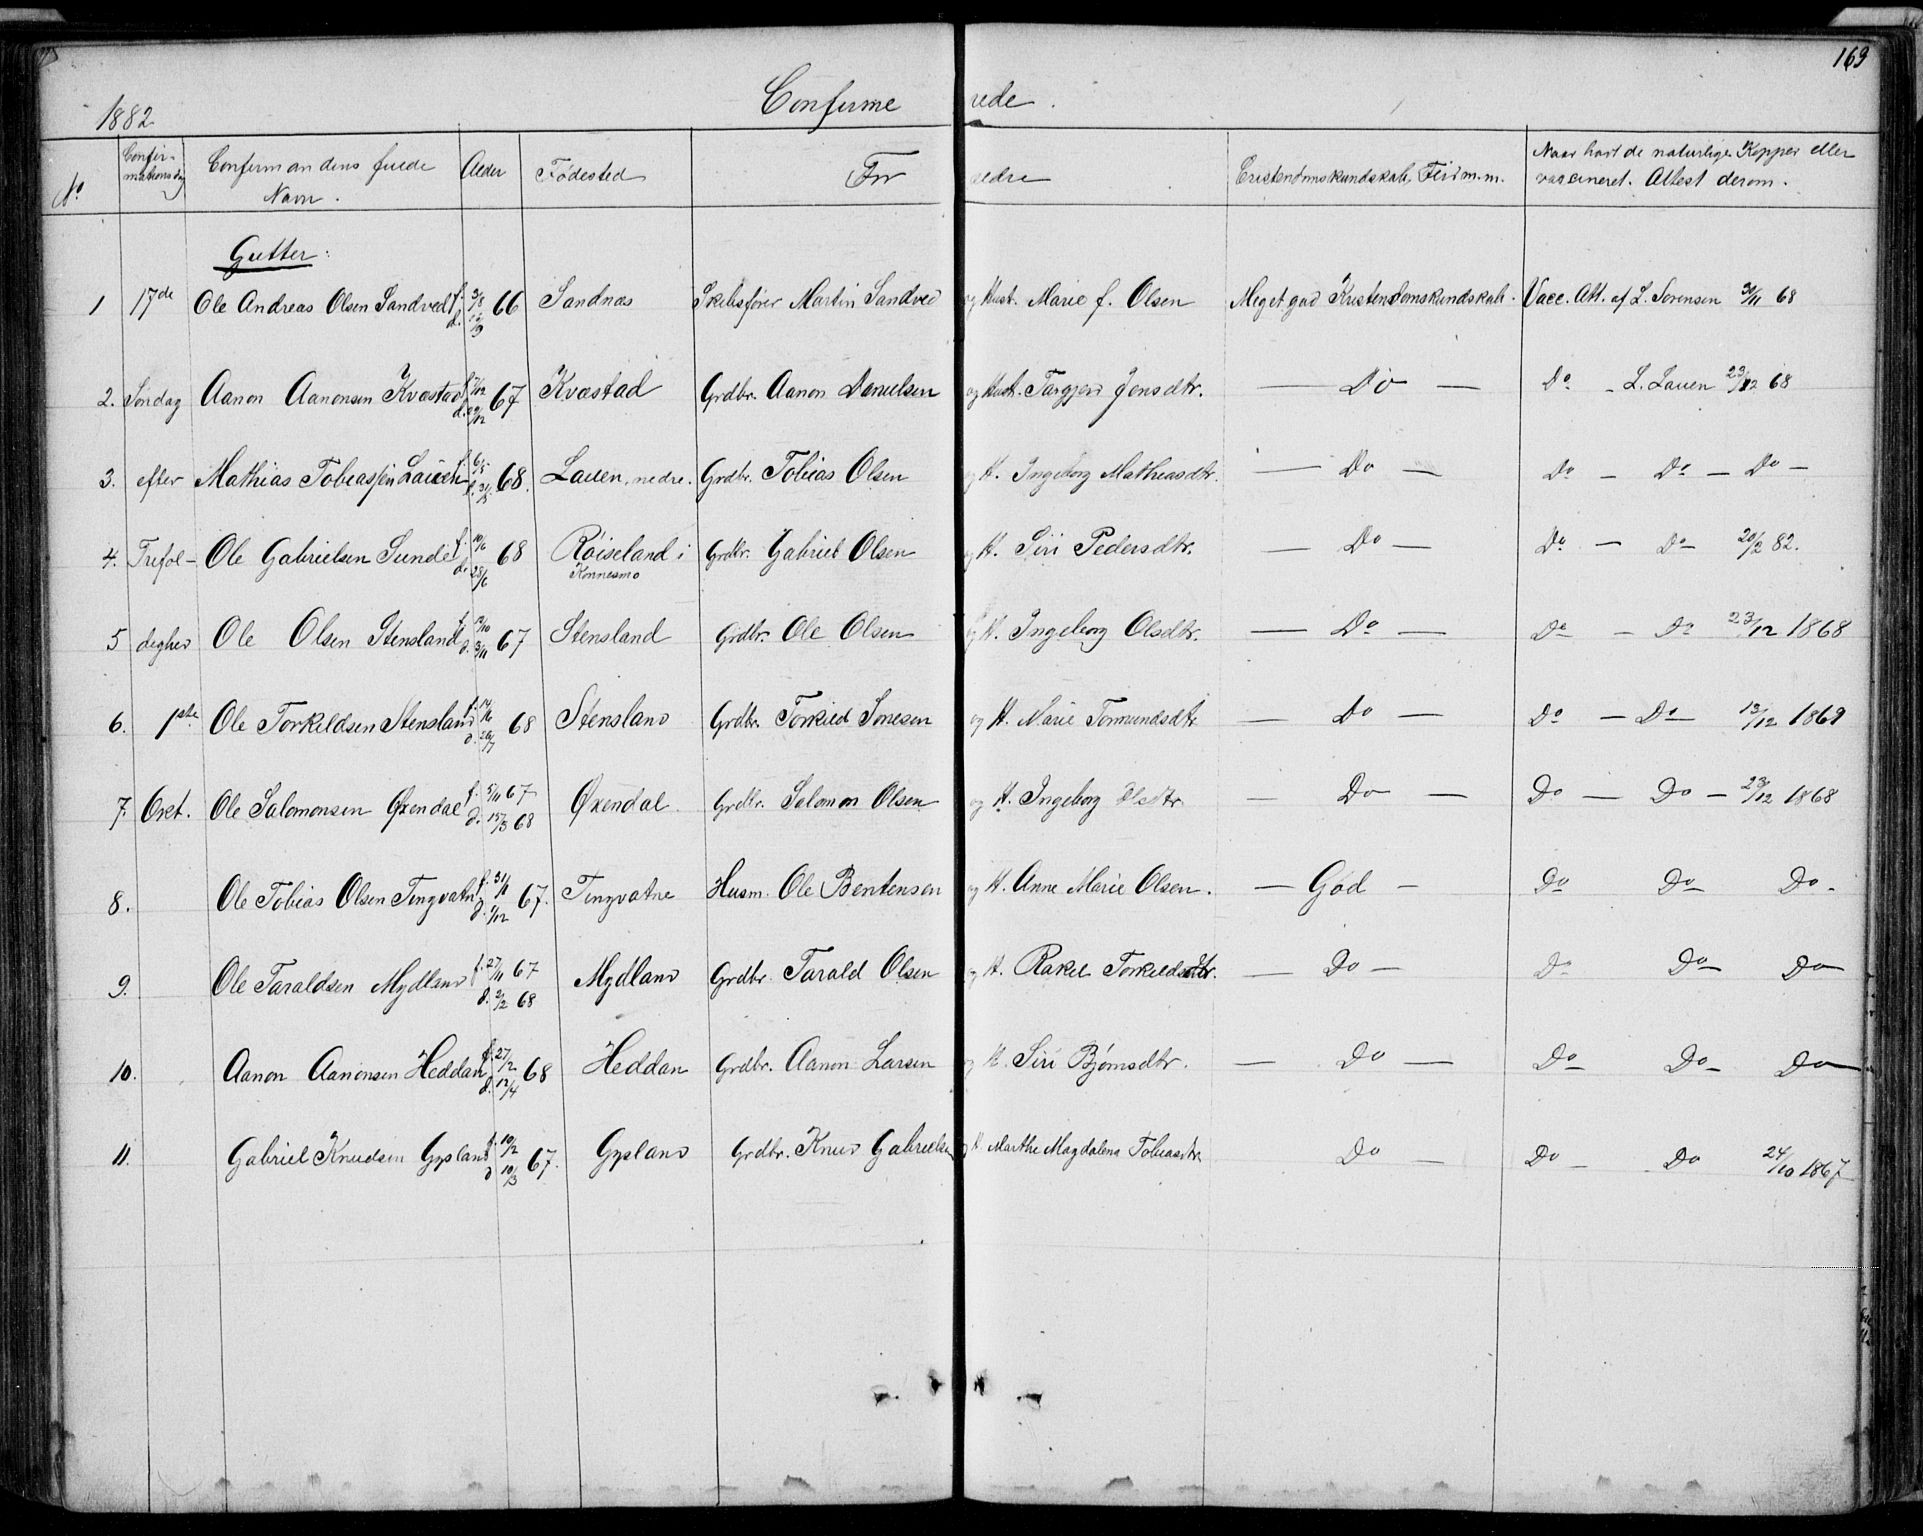 169
1882 Confirmerede.
No Confirmationsdag Confirmandens fulde Navn. Alder Fødested Forældre Cristendomskundskab, Flid m.m. Naar havt de naturlige Kopper eller vaccineret. Attest derom.
Gutter:
1 17de Ole Andreas Olsen Sandved f. 3/8 66 Sandnæs Skibsfører Martin Sandved og Hust. Marie f. Olsen Meget god Kristendomskundskab. Vacc. Att. af L. Sørensen 68
2. Søndag Aanon Aanonsen Kvæstad 67 Kvæstad Grdbr. Aanon Danielsen og Hust. Targjerd Jensdtr. — Do — Do - L. Lauen 23/12 68
3. efter Mathias Tobiassen Lauen f. 6/5 d. 31/5 68. Lauen, nedre. Grdbr. Tobias Olsen og H. Ingeborg Mathiasdtr. — Do — Do - Do - Do -
4. Trefol- Ole Gabrielsen Sunde f. 10/6 d. 28/6 68 Røiseland i Konnesmo Grdbr. Gabriel Olsen og H. Siri Pedersdtr. — Do — Do - Do 20/2 82.
5 dighed Ole Olsen Stensland f. 12/10 d. 3/11 67 Stensland Grdbr. Ole Olsen og H. Ingeborg Olsdtr. — Do — Do - Do 23/12 1868
6. 1ste Ole Torkildsen Stensland 68 Stensland Grdbr. Torkild Sonesen og H. Marie Tormundsdtr — Do — Do - Do 13/12 1869
7. Oct. Ole Salomonsen Øxendal f. 5/11 67 d. 15/3 68 Øxendal Grdbr. Salomon Olsen og H. Ingeborg Olsdtr. — Do — Do - Do - 23/12 1868
8. Ole Tobias Olsen Tingvatn f. 31/1 d. 1/12 67. Tingvatne Husm. Ole Bentensen og H. Anne Marie Olsen. — God - Do Do Do -
9. Ole Taraldsen Mydland f. 27/11 67 d. 2/2 68 Mydland Grdbr. Tarald Olsen og H. Rakel Torkildsdtr. — Do - Do Do Do
10. Aanon Aanonsen Heddan f. 27/2 d. 12/4 68 Heddan Grdbr. Aanon Larsen og H. Siri Bjørnsdtr. — Do — Do Do Do
11. Gabriel Knudsen Gysland f. 10/2 d. 10/3 67. Gysland Grdbr. Knud Gabrielsen og H. Marthe Magdalena Tobiasdtr. Do — Do - Do 24/10 1867